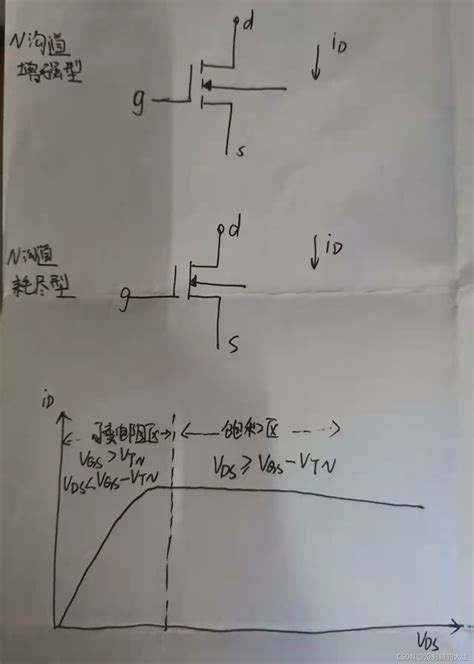 d
N沟道
增强型
iD
g
s
d
N沟道
耗尽型
iD
g
s
iD
可变电阻区
饱和区
VGS>VTN
VDS≥VGS-VTN
VDS<VGS-VTN
VDS